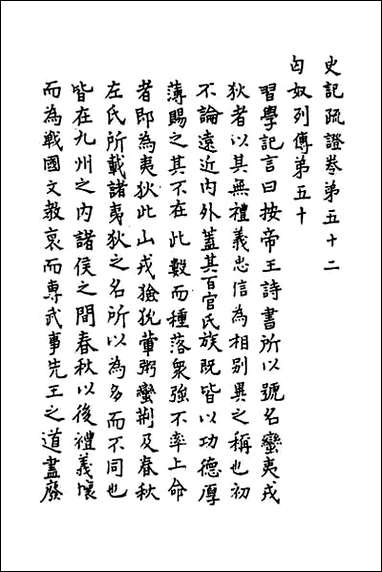 史記疏證卷第五十二
匈奴列傳第五十
習學記言曰按帝王詩書所以號名蠻夷戎
狄者以其無禮義忠信為相别異之稱也初
不論遠近内外蓋其百官氏族既皆以功德厚
薄賜之其不在此數而種落衆強不率上命
者即為夷狄此山戎獫狁葷粥蠻荆及春秋
左氏所載諸夷狄之名所以為多而不同也
皆在九州之内諸侯之間春秋以後禮義壞
而為戰國文教衰而専武事先王之道盡廢